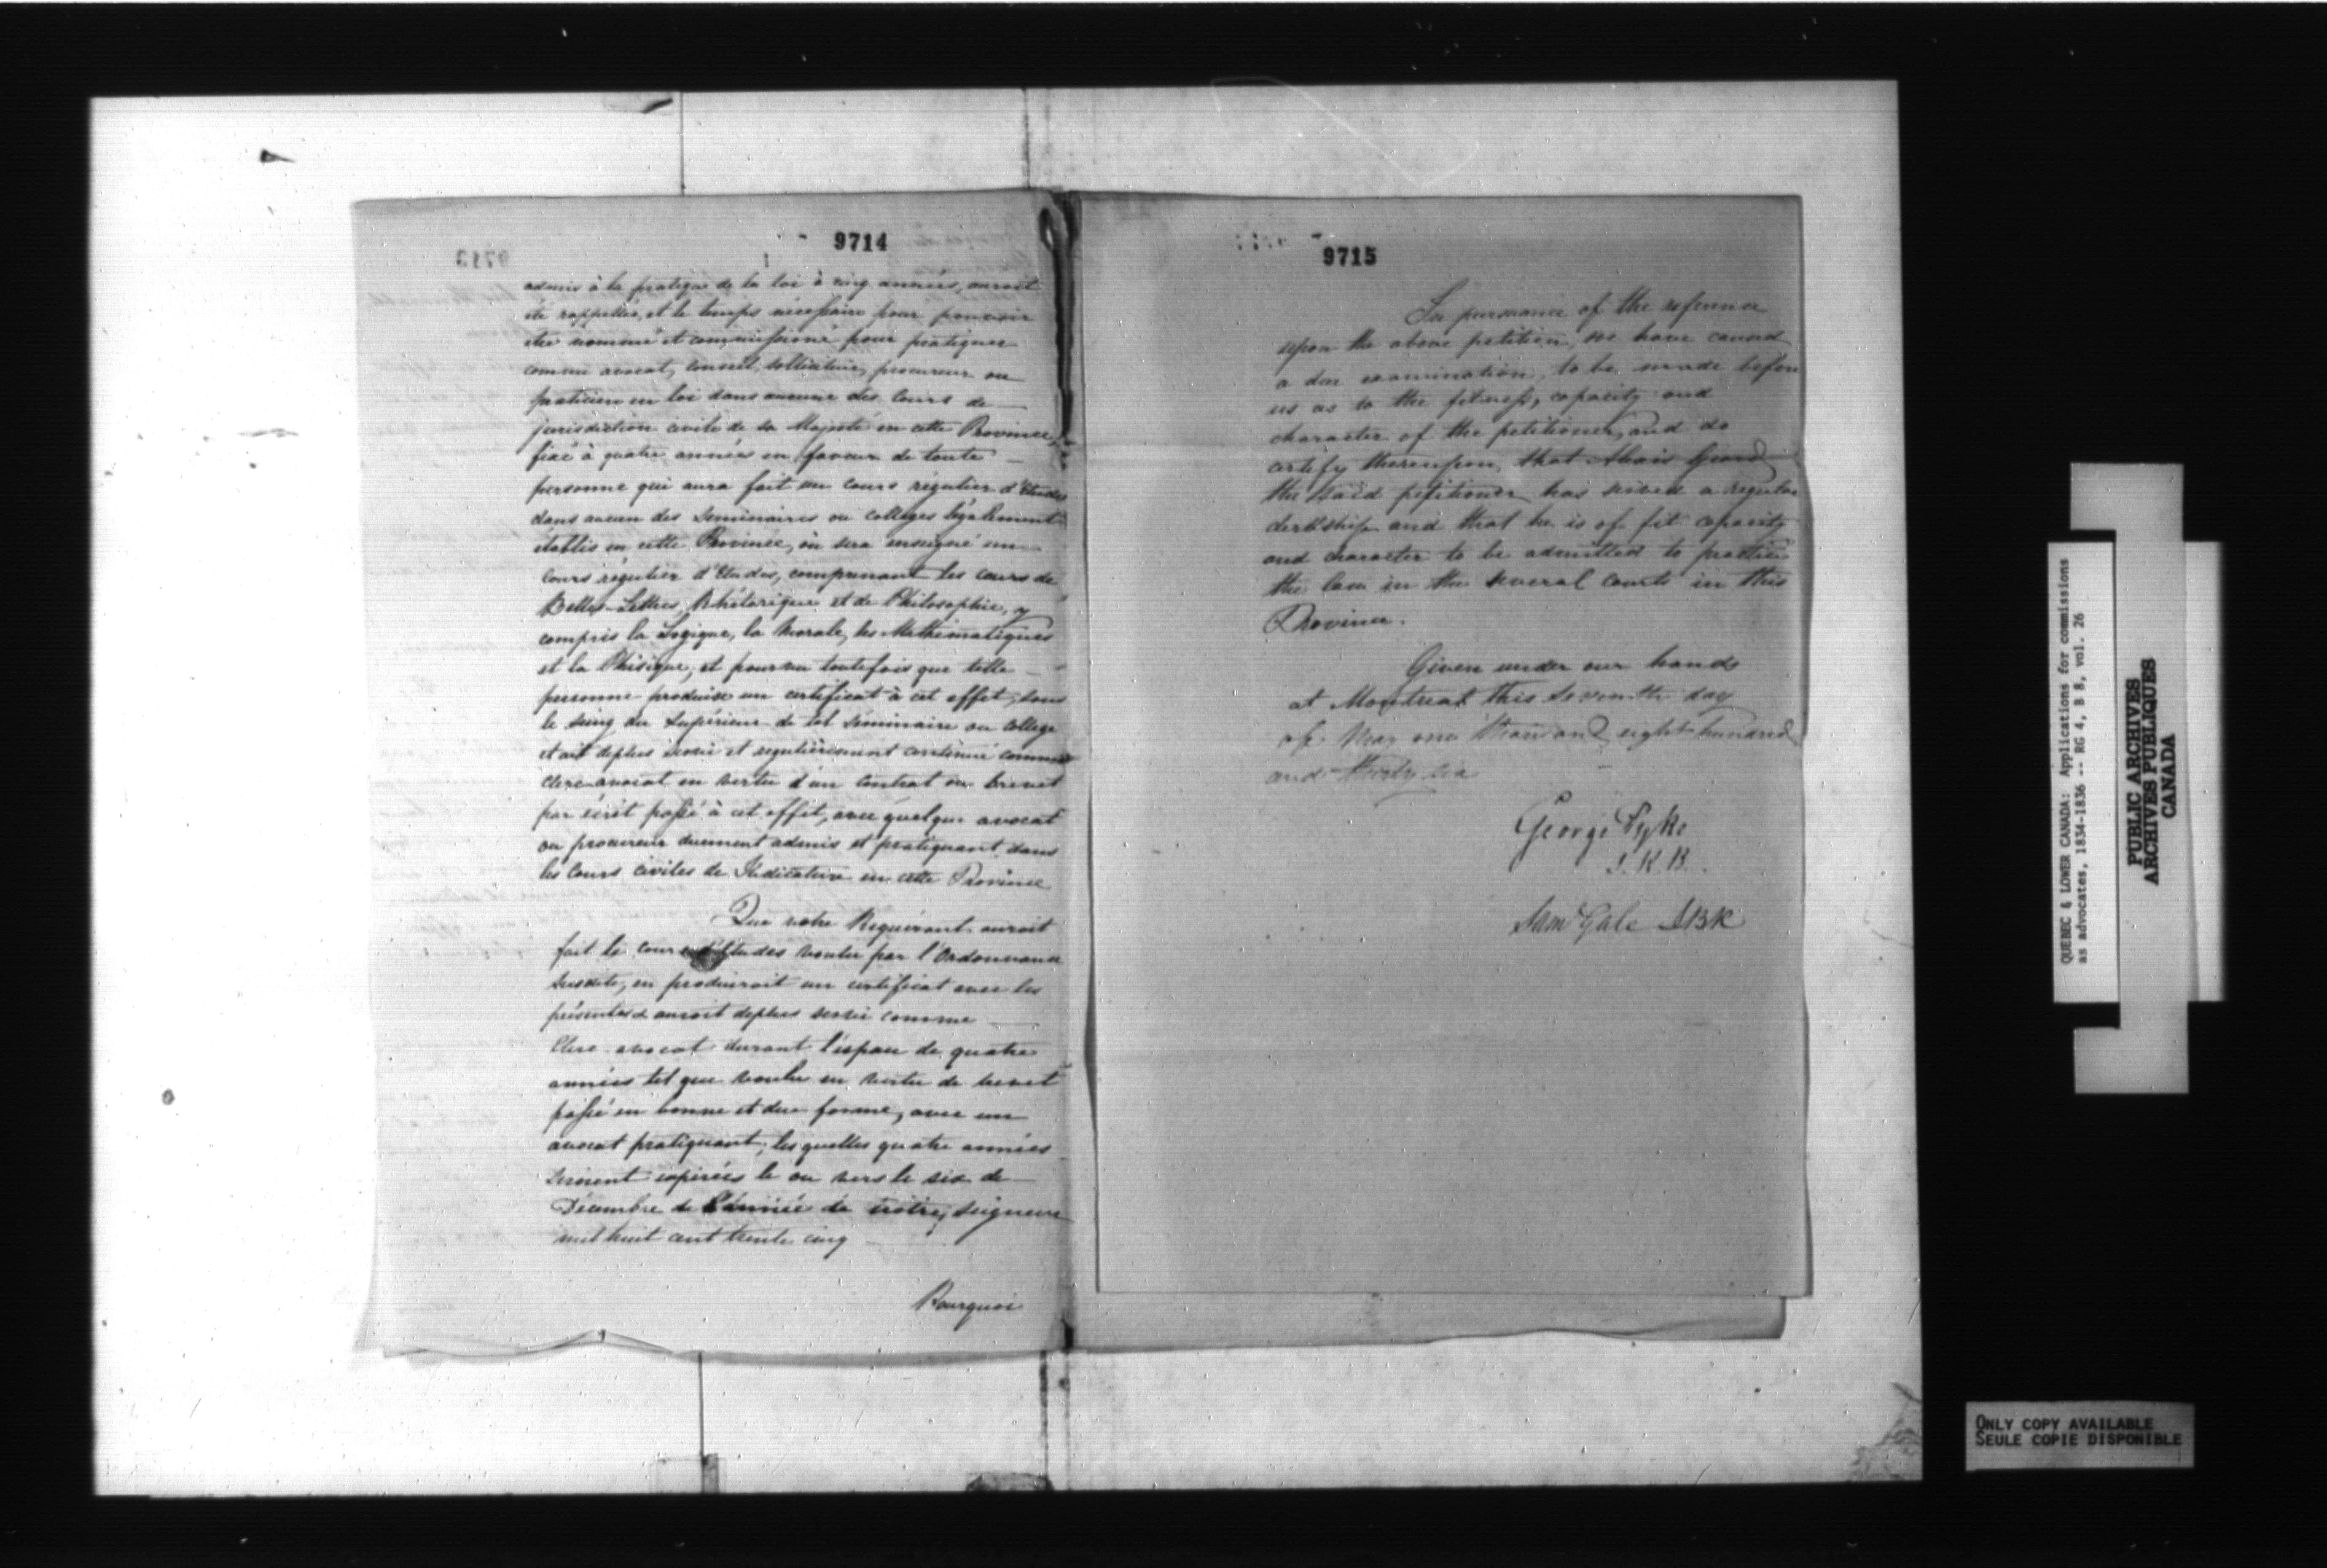 9714
admis à la pratique de la loi à cinq années, auroit
été rappellée, et le temps nécessaire pour pouvoir
être nommé et commissionné pour pratiquer
comme avocat, conseil, solliciteur, procureur ou
praticien en loi dans aucune des Cours de
jurisdiction civile de sa Majesté en cette Province,
fixé à quatre années en faveur de toute
personne qui aura fait un cours régulier d'Etudes
dans aucun des Séminaires ou collèges légalement
établis en cette Province, où sera enseigné un
Cours régulier d'Etudes, comprenant les cours de
Belles-Lettres, Rhétorique et de Philosophie, y
compris la Logique, la Morale, les Mathématiques
et la Phisique; et pourvu toutefois que telle
personne produise un certificat à cet effet, sous
le seing du Supérieur de tel Séminaire ou College
et ait deplus servi et regulièrement continué comme
clerc avocat en vertu d'un contrat ou brevet
par écrit passé à cet effet, avec quelque avocat
ou procureur duement admis et pratiquant dans
les Cours civiles de Judicature en cette Province
Que votre Requérant auroit
fait le cours d'Etudes voulu par l'Ordonnance
susdite, en produiroit un certificat avec les
présentes & auroit deplus servi comme
Clerc avocat durant l'espace de quatre
années tel que voulu en vertu de brevet
passé en bonne et due forme, avec un
avocat pratiquant; les quelles quatre années
seroient expirées le ou vers le six de
Décembre de l'année de notre Seigneur
mil huit cent trente cinq
Pourquoi
9715
In pursuance of the reference
upon the above petition, we have caused
a due examination, to be made before
us as to the fitness, capacity and
character of the petitioner, and do
certify thereupon, that Girard
the said petitioner has served a regular
clerkship and that he is of fit capacity
and character to be admitted to practice
the law in the several Courts in this
Province.
Given under our hands
at Montreal this seventh day
of May one thousand eight hundred
and thirty six
George Pyke
J.K.B.
Saml Gale JBK
QUEBEC & LOWER CANADA: Applications for commissions
as advocates, 1834-1836 -- RG 4, B 8, vol. 26
PUBLIC ARCHIVES
ARCHIVES PUBLIQUES
CANADA
ONLY COPY AVAILABLE
SEULE COPIE DISPONIBLE